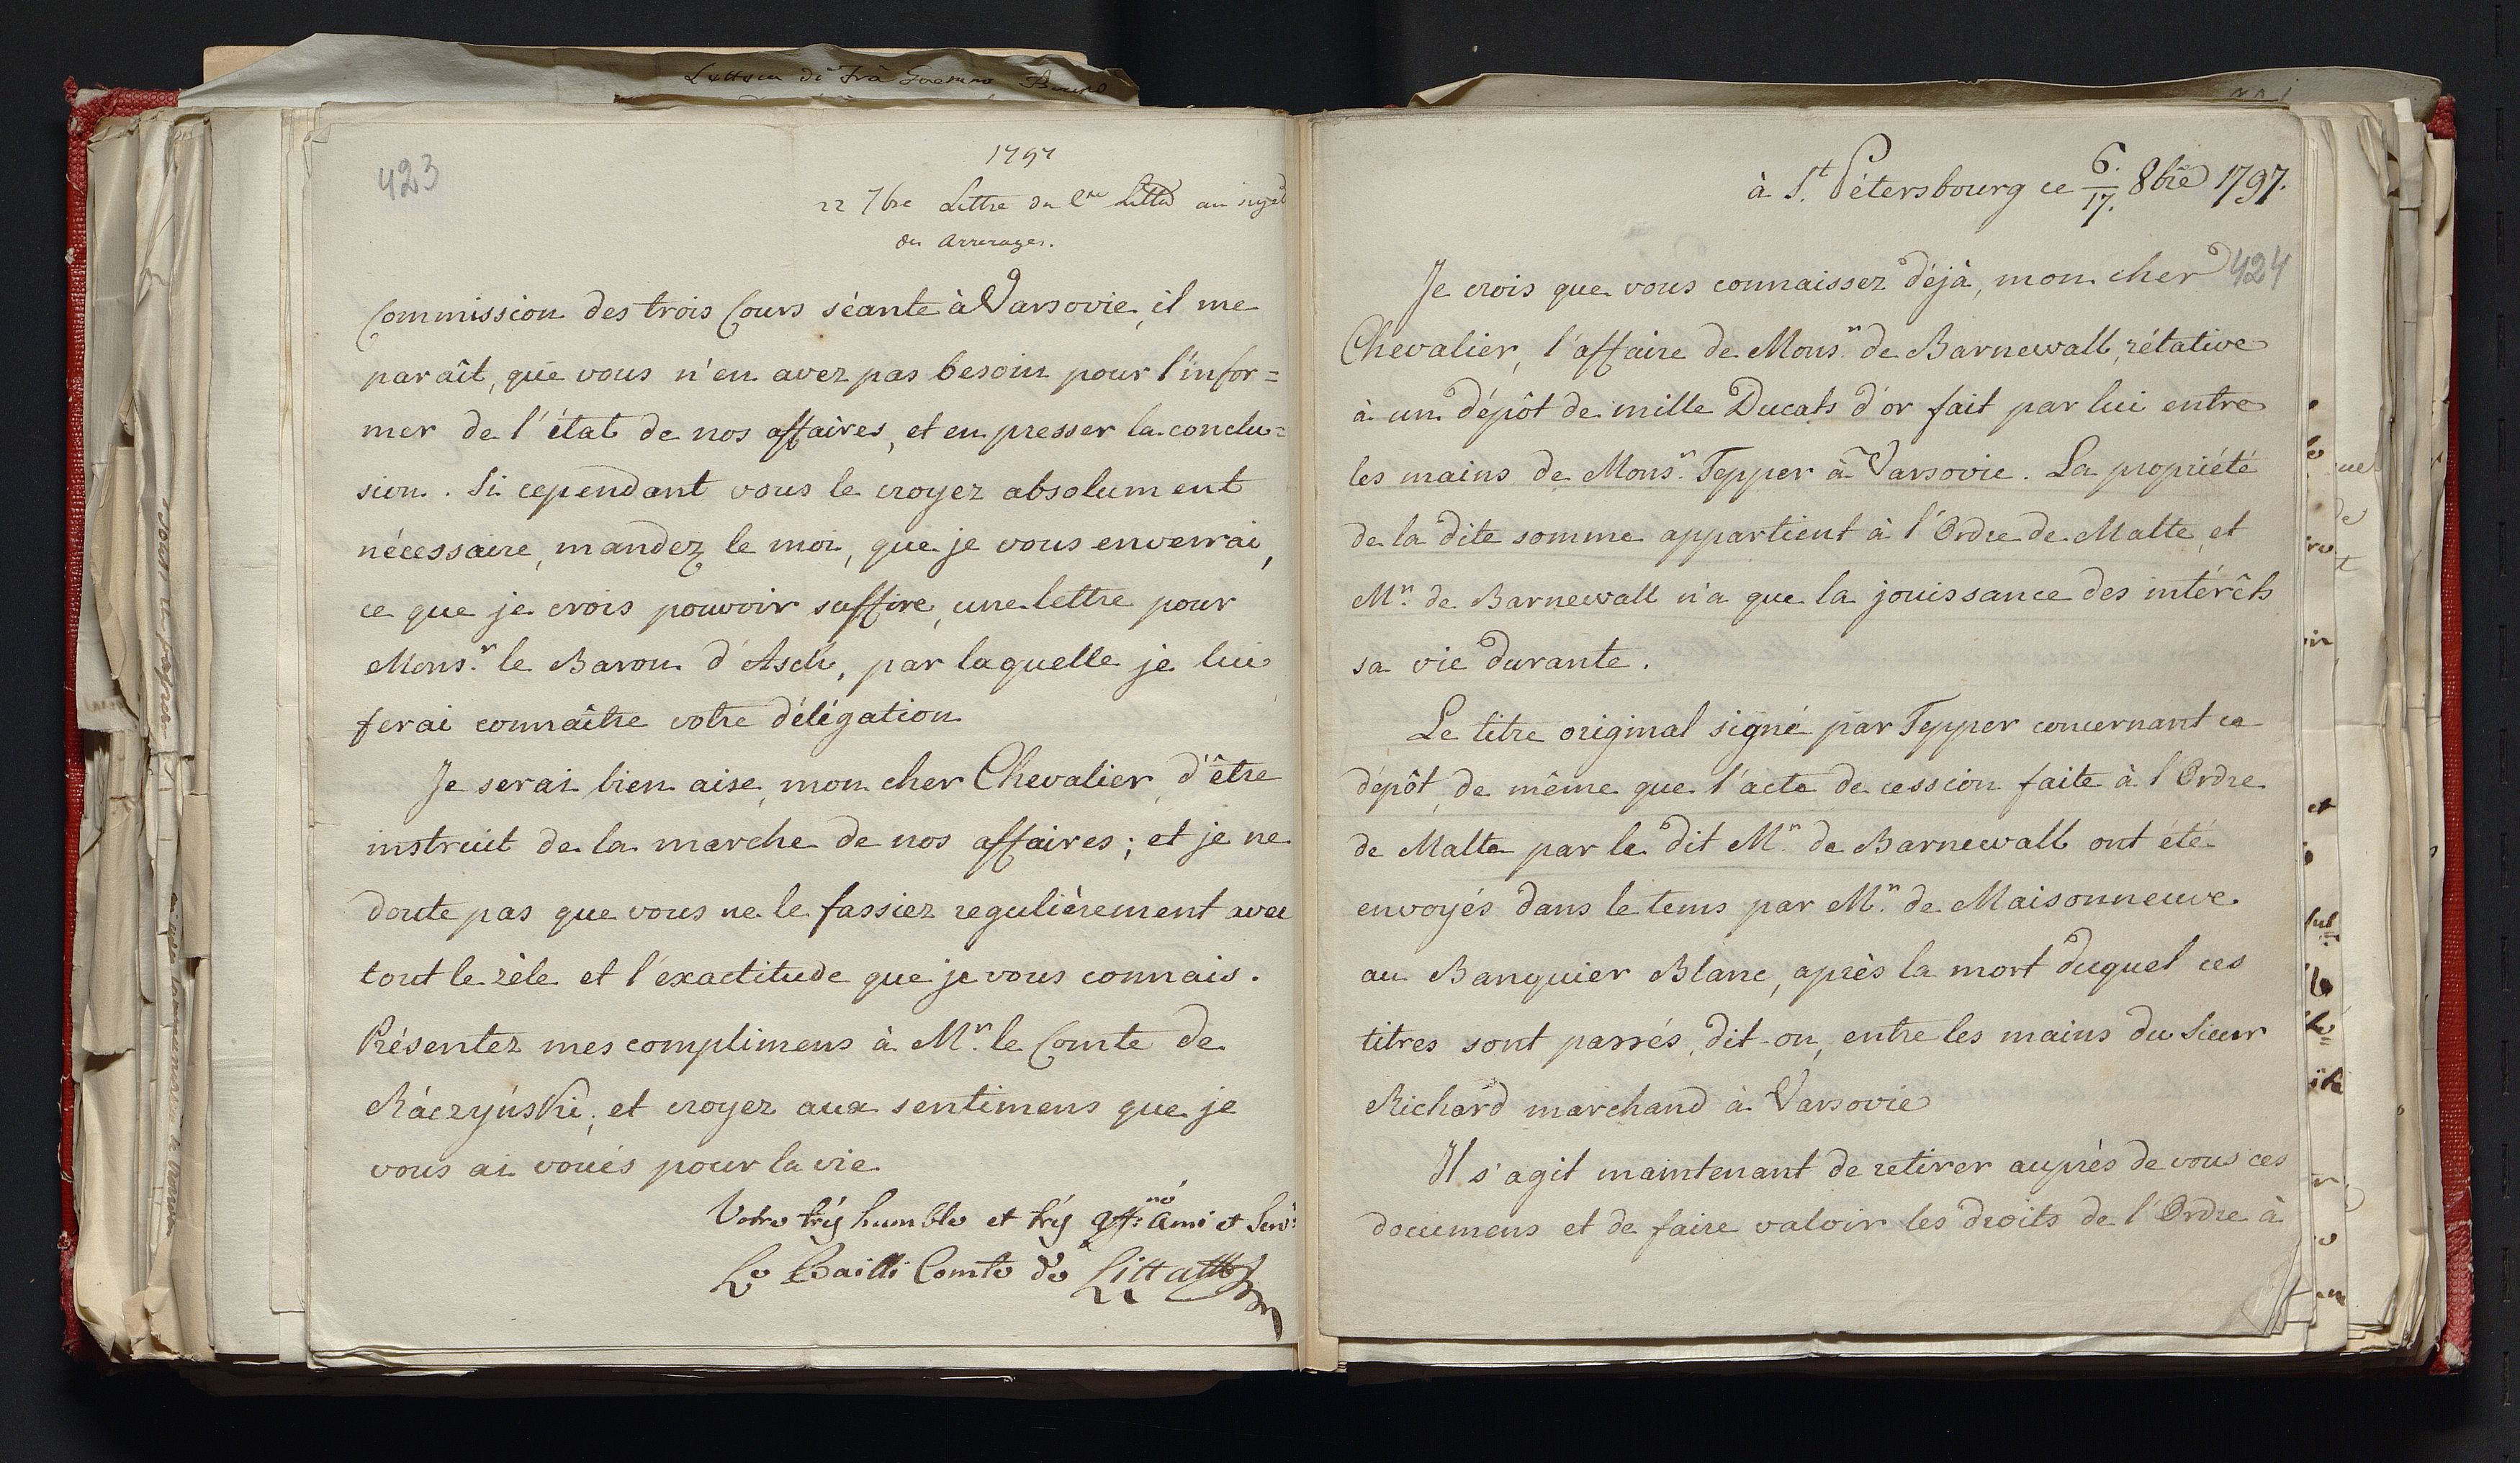 Lettera di Frà
423
1797
22 7bre Lettre du Cte Litta au sujet
des Arrerages.
Commission des trois Cours séante à Varsovie, il me
paraît, que vous n'en avez pas besoin pour l'infor=
mer de l'état de nos affaires, et en presser la conclu=
sion. Si cependant vous le croyez absolument
nécessaire, mandez le moi, que je vous enverrai,
ce que je crois pouvoir suffire, une lettre pour
Mons.r le Baron d'Asch, par laquelle je lui
ferai connaître votre délégation
Je serai bien aise, mon cher Chevalier, d'être
instruit de la marche de nos affaires; et je ne
doute pas que vous ne le fassiez regulièrement avec
tout le zèle et l'exactitude que je vous connais.
Présentez mes complimens à M.r le Comte de
Ráczyński, et croyez aux sentimens que je
vous ai voués pour la vie
Votre très humble et très aff:né Ami et Serv:r
Le Bailli Comte de Litta
à S.t Pétersbourg ce 6./17. 8bre 1797.
424
Je crois que vous connaissez déjà, mon cher
Chevalier, l'affaire de Mons.r de Barnewall, rélative
à un dépôt de mille Ducats d'or fait par lui entre
les mains de Mons.r Tepper à Varsovie. La propriété
de la dite somme appartient à l'Ordre de Malte, et
M.r de Barnewall n'a que la jouissance des intérêts
sa vie durante.
Le titre original signé par Tepper concernant ce
dépôt, de même que l'acte de cession faite à l'Ordre
de Malte par le dit M.r de Barnewall ont été
envoyés dans le tems par M.r de Maisonneuve
au Banquier Blanc, après la mort duquel ces
titres sont passés, dit-on, entre les mains du Sieur
Richard marchand à Varsovie
Il s'agit maintenant de retirer auprès de vous ces
documens et de faire valoir les droits de l'Ordre à